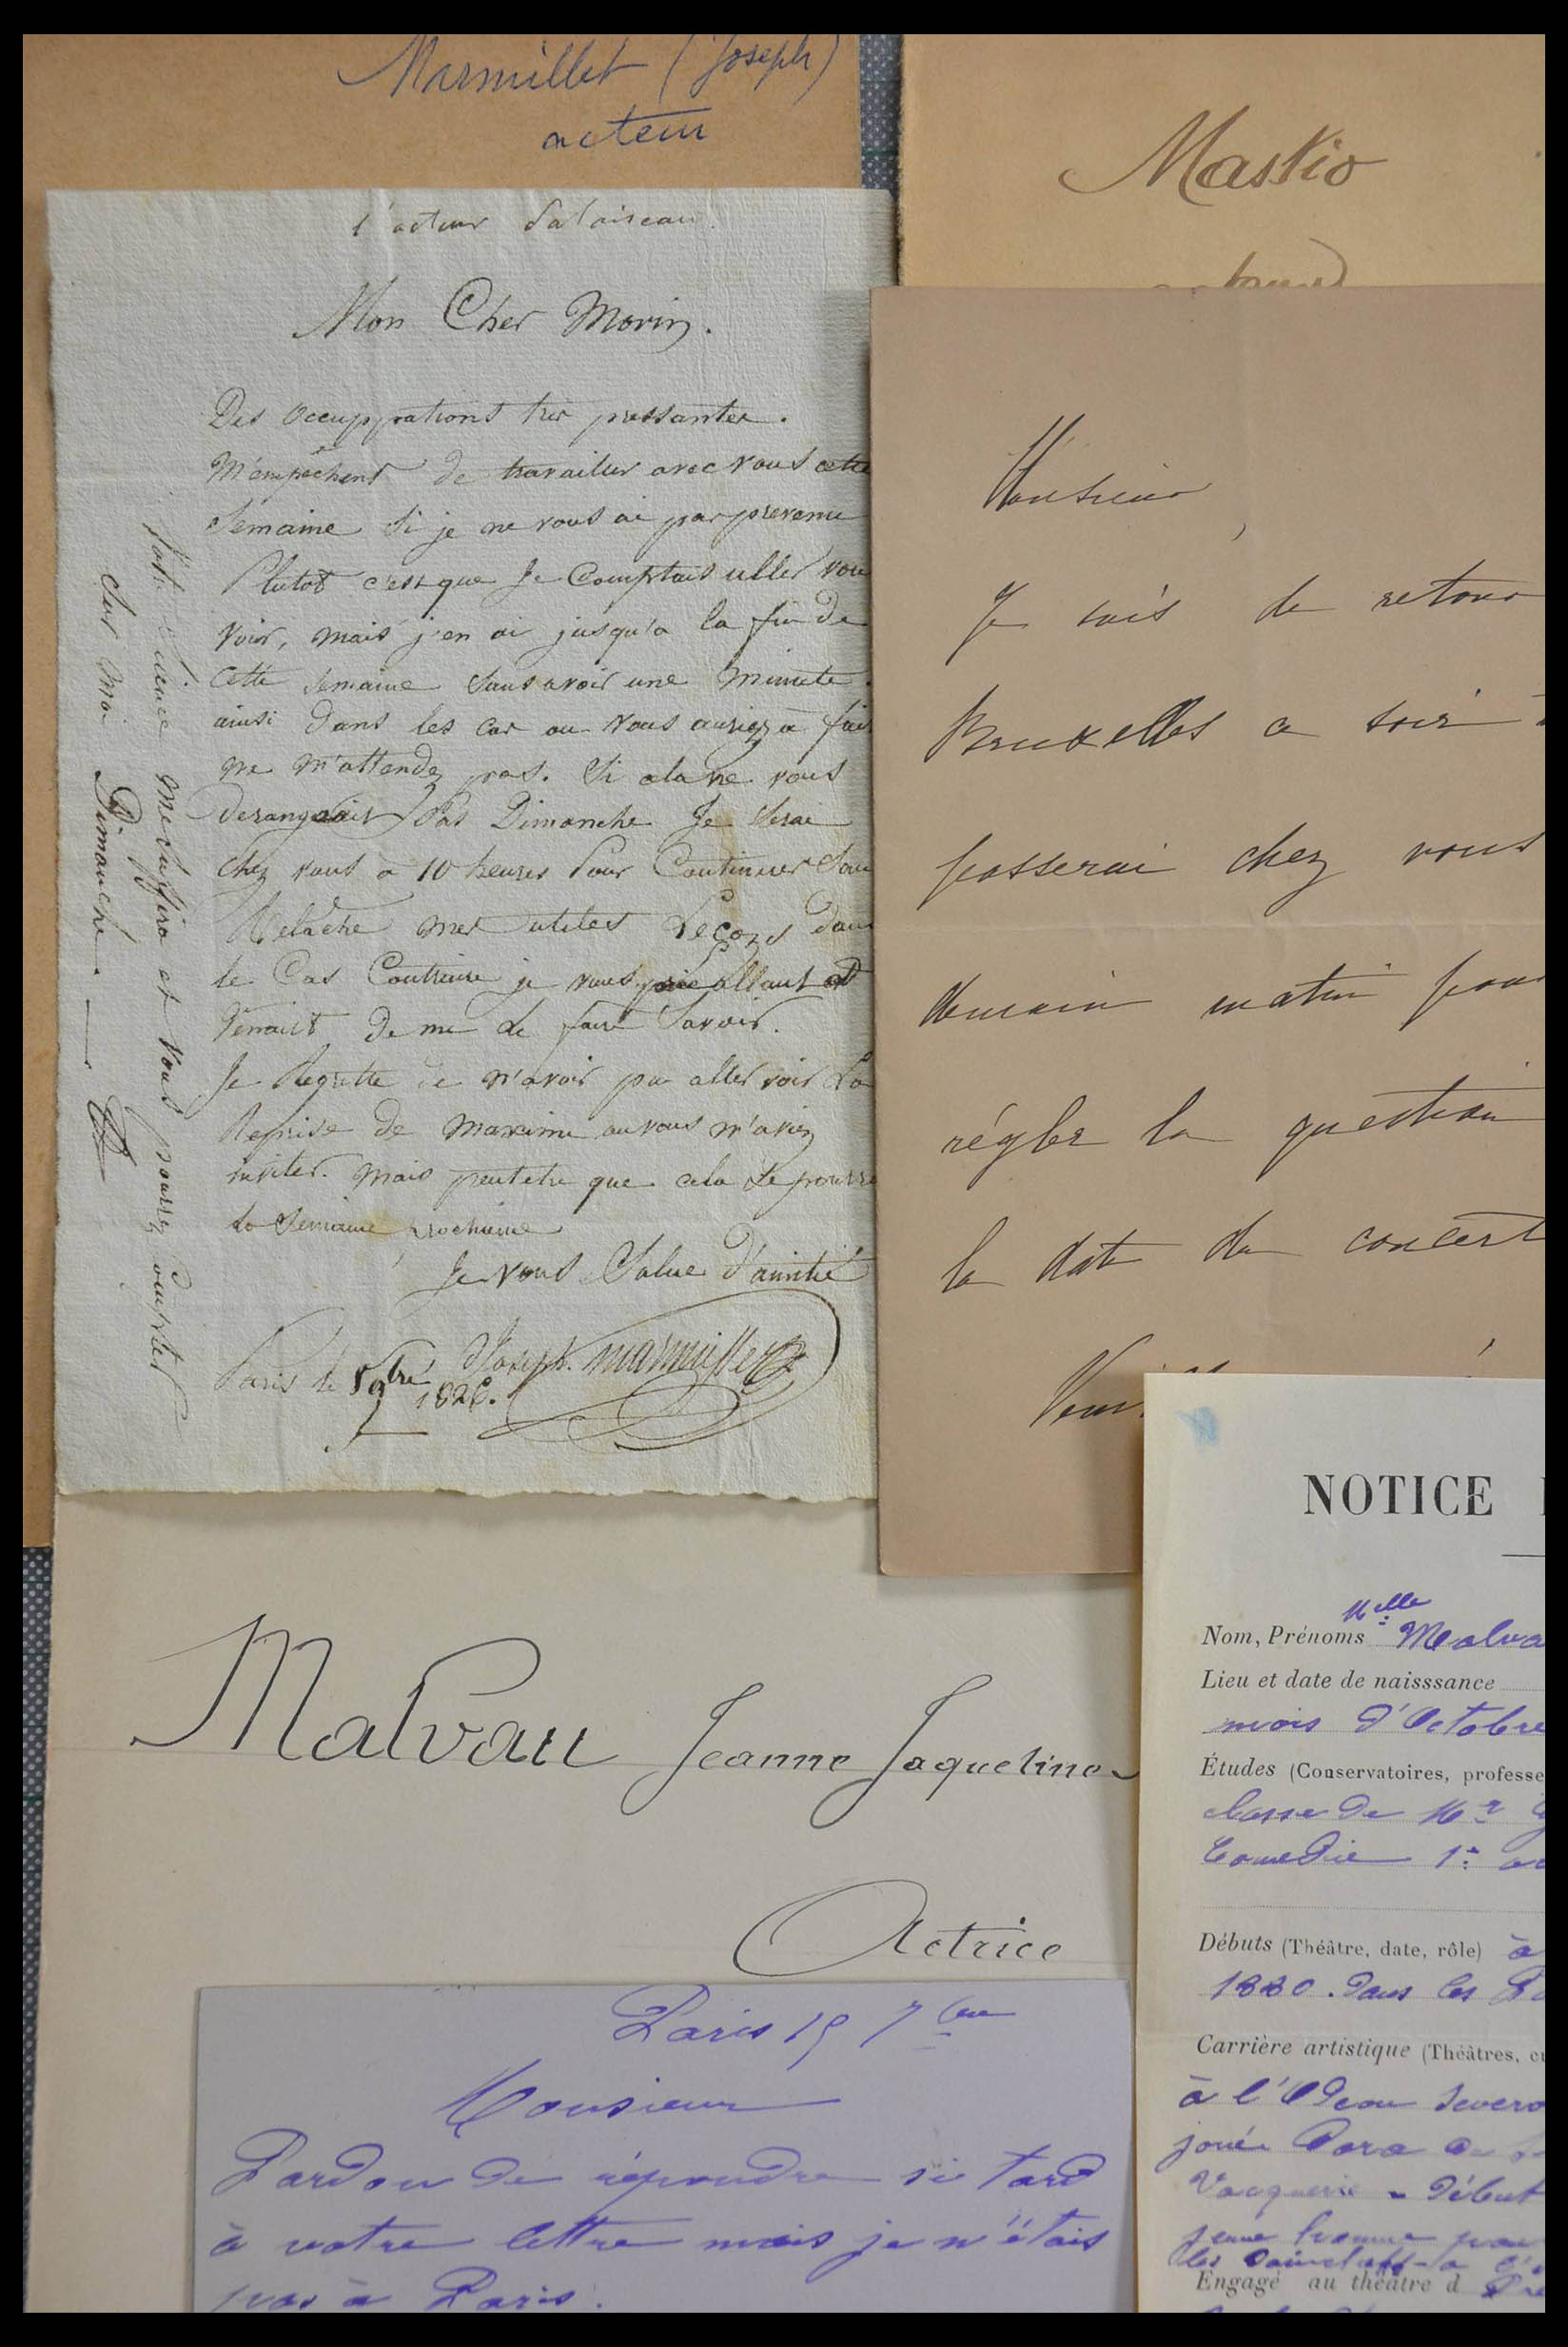 Marmillet (Joseph)
acteur
l'acteur
Mon Cher Morin.
Des Occupprations très pressantes.
M'empêchent de travailler avec vous cette
Semaine Si je ne vous ai pas prevenu
Plutot c'est que Je Comptais aller vous
Voir, mais j'en ai jusqu'a la fin de
Cette Semaine Sans avoir une Minute.
ainsi dans les cas ou Vous auriez a
ne m'attendez pas. Si cela ne vous
derangeait Pas Dimanche Je Serai
chez vous a 10 heures Pour Continuer Sans
Relache mes utiles Leçons dans
le Cas Contraire je vous prie allant et
Venant de me le faire Savoir.
Je Regrette de n'avoir pu aller voir La
Reprise de Maxime ou vous m'aviez
inviter. Mais peutetre que cela Se pourra
la Semaine prochaine
Je vous Salue d'amitié
Joseph. marmillet
Paris le 5 9bre 1826.
Votre Silence me Suffira et Vous pourrez Compter
Sur moi Dimanche.
Maskio
Monsieur,
Je suis de retour
Bruxelles ce soir
passerai chez vous
demain matin pour
régler la question
la date du concert
NOTICE
Nom, Prénoms Melle Malva
Lieu et date de naisssance
mois d'Octobre
Études (Conservatoires, professe
classe de Mr
Comedie 1r
Débuts (Théâtre, date, rôle) à
1880. Dans les
Carrière artistique (Théâtres,
à l'Odeon Severo
jouée
Vacquerie - Début
jeune homme
les
Engagé au théâtre d
Malvau Jeanne Jaqueline
Actrice
Paris 15 7bre
Monsieur
Pardon de répondre si tard
à votre lettre mais je n'étais
pas à Paris.